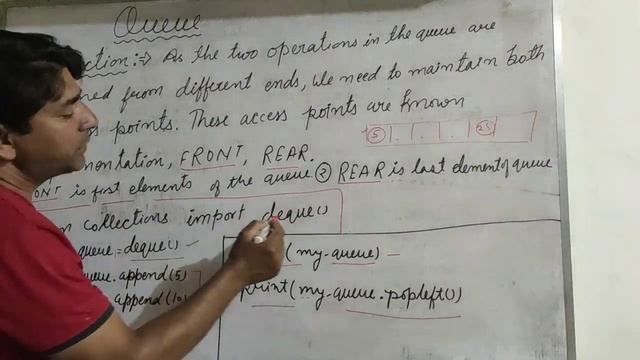 Queue
ction:⇒ As the two operations in the queue are
ned from different ends, We need to maintain both
points. These access points are known
5 . . . 25
mentation, FRONT, REAR.
ONT is first elements of the queue ② REAR is last element of queue
collections import deque()
queue = deque()
print(my-queue)
queue.append(5)
append(10)
print(my-queue.popleft())